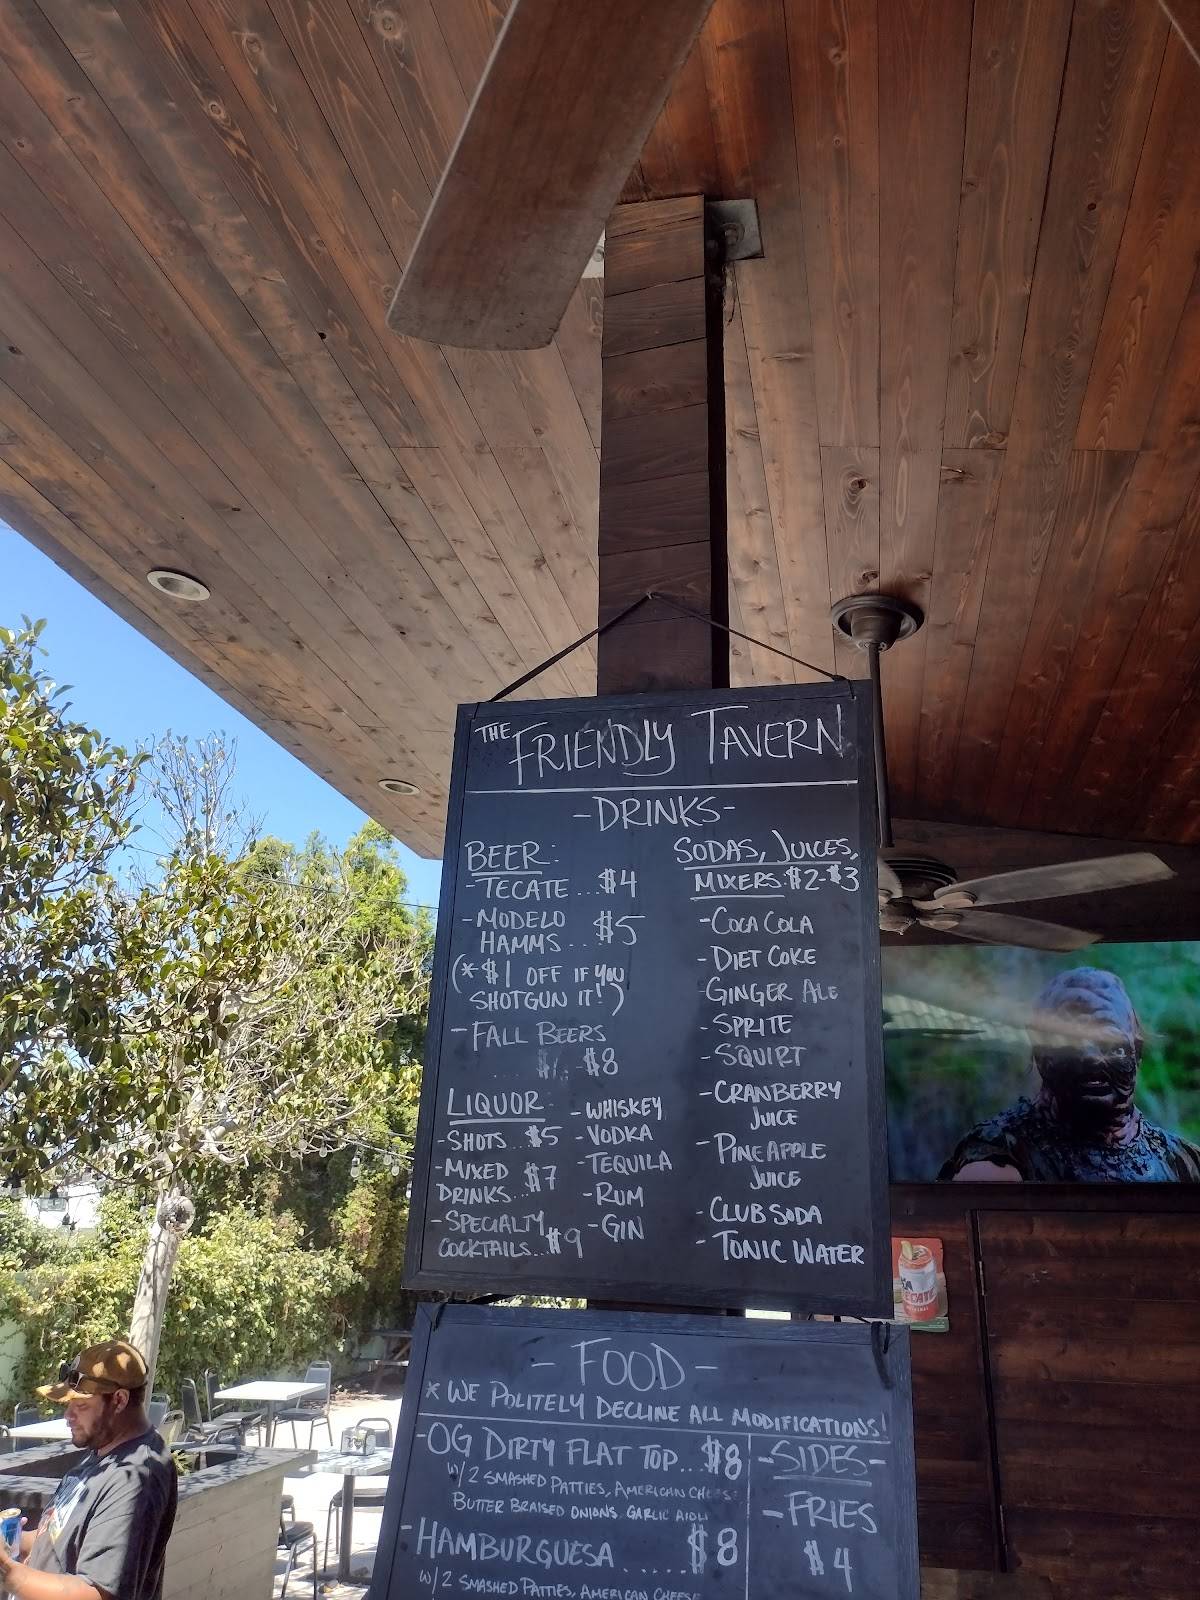 THE FRIENDLY TAVERN
-DRINKS-
BEER:
-TECATE...$4
-MODELO
HAMMS... $5
(*$1 OFF IF YOU
SHOTGUN IT!)
-FALL BEERS
$8
LIQUOR
-SHOTS...$5
-MIXED
DRINKS...$7
-SPECIALTY
COCKTAILS...$9
-WHISKEY
-VODKA
-TEQUILA
-RUM
-GIN
SODAS, JUICES,
MIXERS $2-$3
-COCA COLA
-DIET COKE
-GINGER ALE
-SPRITE
-SQUIRT
-CRANBERRY
JUICE
-PINEAPPLE
JUICE
-CLUB SODA
-TONIC WATER
-FOOD-
* WE POLITELY DECLINE ALL MODIFICATIONS!
-OG DIRTY FLAT TOP...$8
W/2 SMASHED PATTIES, AMERICAN CHEESE
BUTTER BRAISED ONIONS, GARLIC AIOLI
-HAMBURGUESA.....$8
W/2 SMASHED PATTIES, AMERICAN CHEESE
-SIDES-
-FRIES
$4